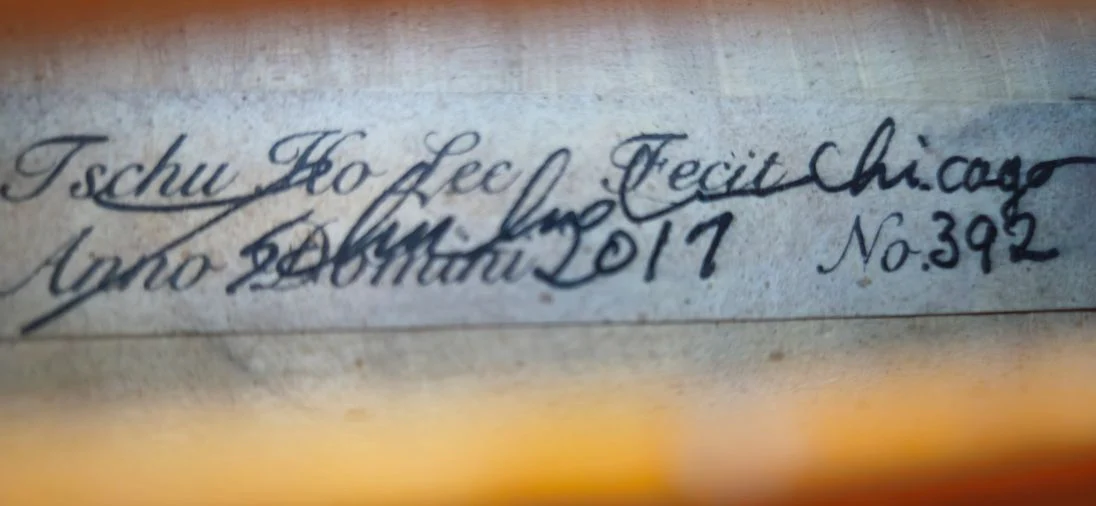 Tschu Ho Lee Fecit Chicago
Anno Domini 2017 No. 392